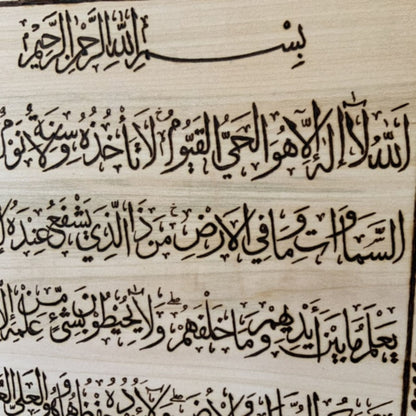 بِسْمِ اللهِ الرَّحْمٰنِ الرَّحِيمِ
اَللّٰهُ لَا إِلٰهَ إِلَّا هُوَ الْحَيُّ الْقَيُّومُ لَا تَأْخُذُهُ سِنَةٌ وَلَا نَوْمٌ
السَّمَاوَاتِ وَمَا فِي الْأَرْضِ مَنْ ذَا الَّذِي يَشْفَعُ عِنْدَهُ
يَعْلَمُ مَا بَيْنَ أَيْدِيهِمْ وَمَا خَلْفَهُمْ وَلَا يُحِيطُونَ بِشَيْءٍ مِّنْ عِلْمِهِ
وَالْأَرْضَ وَلَا يَؤُدُهُ حِفْظُهُمَا وَهُوَ الْعَلِيُّ